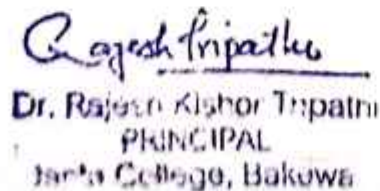 Rajesh Tripathi
Dr. Rajesh Kishor Tripathi
PRINCIPAL
Janta College, Bakewa